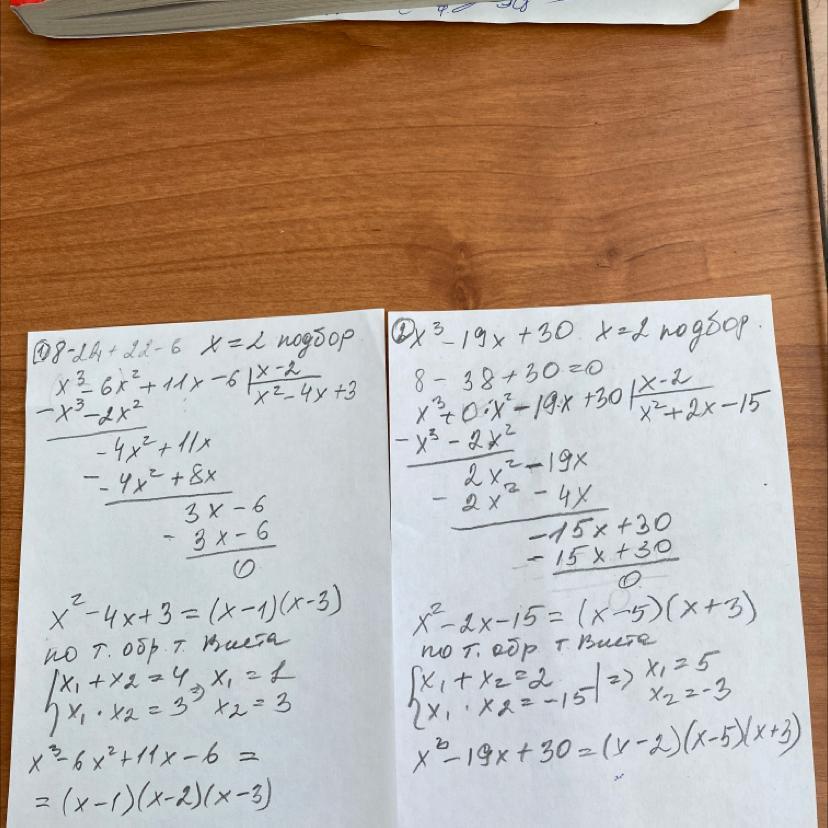 ① 8-24+22-6 x=2 подбор
x³-6x²+11x-6 | x-2
- x³-2x² x²-4x+3
-4x²+11x
- -4x²+8x
3x-6
- 3x-6
0
x²-4x+3=(x-1)(x-3)
по т. обр. т. Виета
{ x₁+x₂=4 => x₁=1
x₁·x₂=3 x₂=3
x³-6x²+11x-6=
=(x-1)(x-2)(x-3)
② x³-19x+30 x=2 подбор.
8-38+30=0
x³+0·x²-19x+30 | x-2
- x³-2x² x²+2x-15
2x²-19x
- 2x²-4x
-15x+30
-15x+30
0
x²-2x-15=(x-5)(x+3)
по т. обр. т. Виета
{ x₁+x₂=2 | => x₁=5
x₁·x₂=-15 x₂=-3
x³-19x+30=(x-2)(x-5)(x+3)